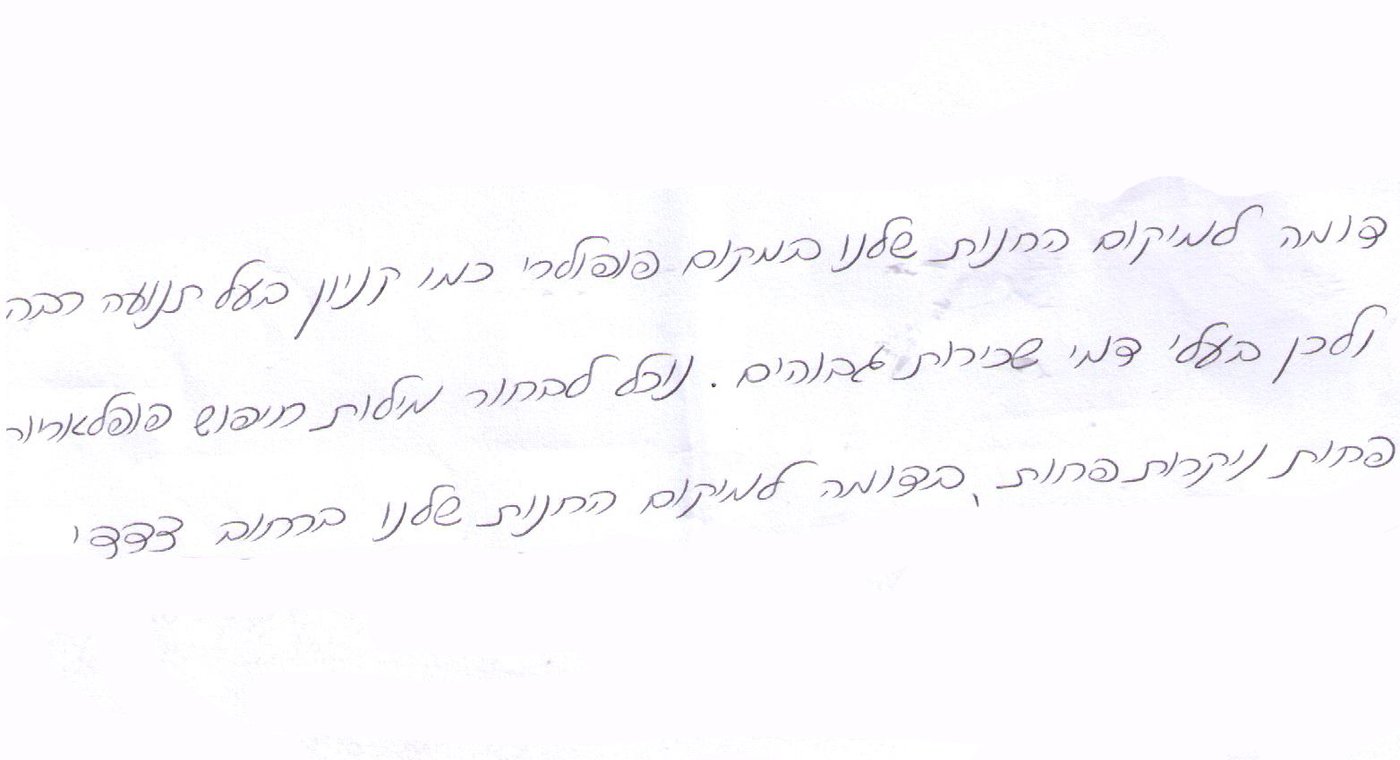 דומה למיקום החנות שלנו במקום פופולרי כמו קניון בעל תנועה רבה
ולכן בעלי דמי שכירות גבוהים. נוכל לבחור מילות חיפוש פופלאריור
פחות ניקרות פחות, בדומה למיקום החנות שלנו ברחוב צדדי